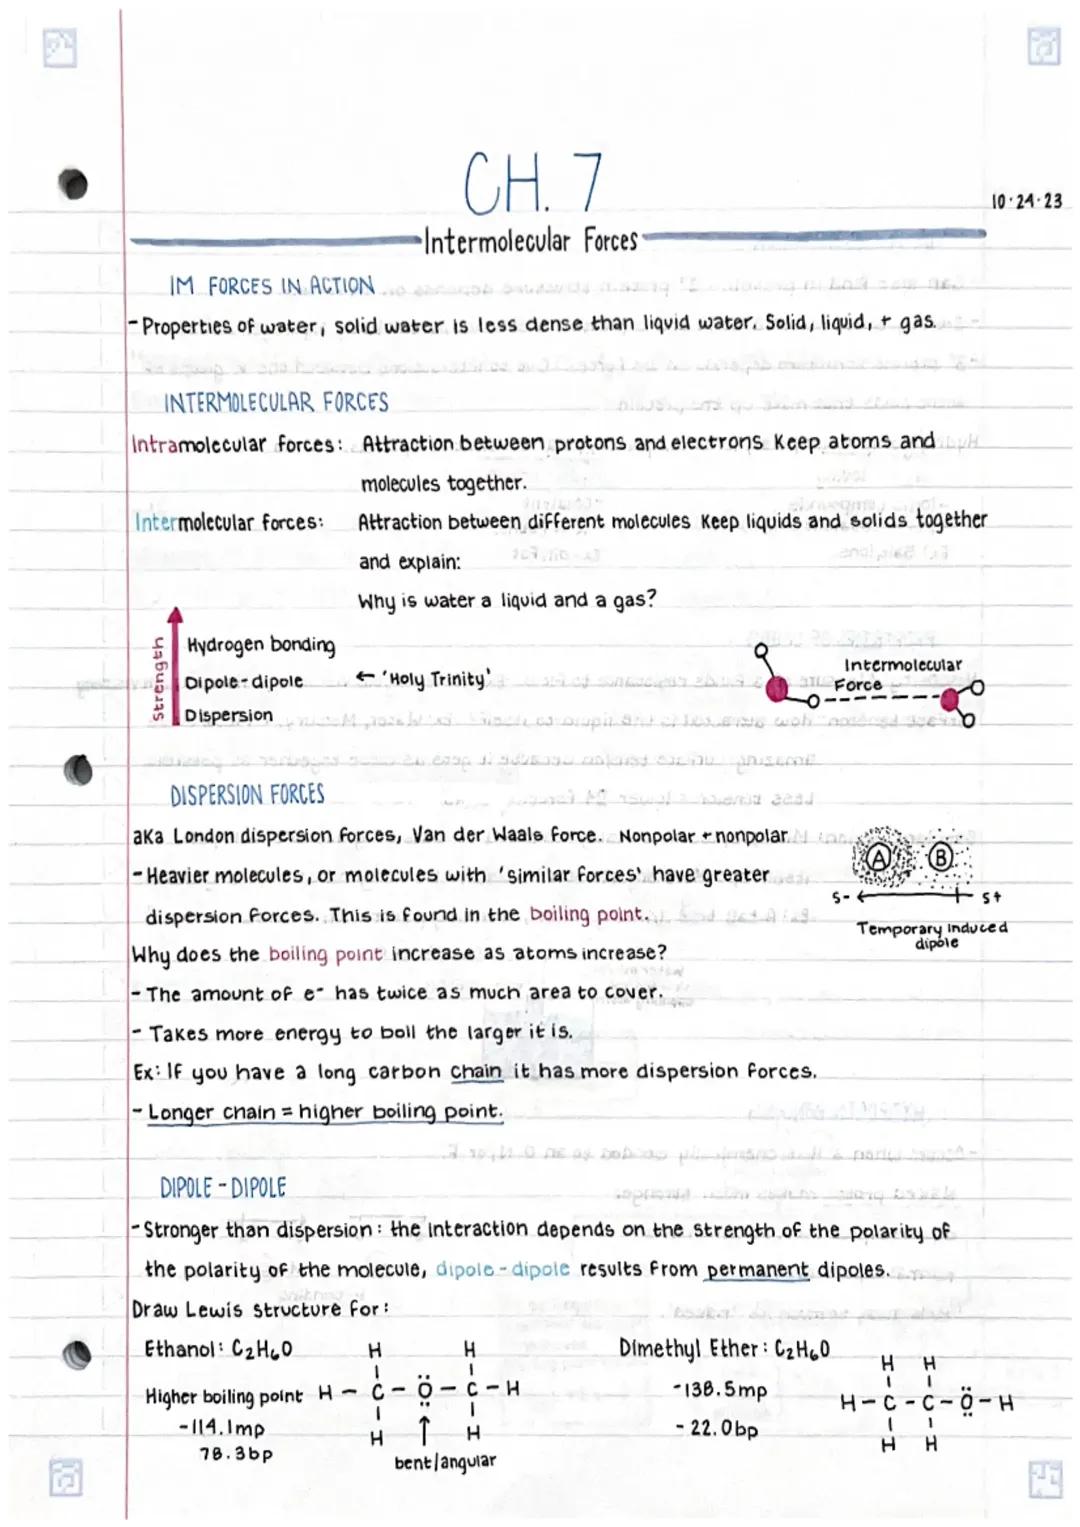 CH. 7
10·24·23
Intermolecular Forces
IM FORCES IN ACTION
- Properties of water, solid water is less dense than liquid water. Solid, liquid, + gas.
INTERMOLECULAR FORCES
Intramolecular forces: Attraction between protons and electrons Keep atoms and
molecules together.
Intermolecular forces: Attraction between different molecules Keep liquids and solids together
and explain:
Why is water a liquid and a gas?
Strength
Hydrogen bonding
Dipole-dipole ← 'Holy Trinity'
Dispersion
Intermolecular
Force
DISPERSION FORCES
aka London dispersion forces, Van der Waals force. Nonpolar + nonpolar
- Heavier molecules, or molecules with 'similar forces' have greater
dispersion forces. This is found in the boiling point.
A B
S- S+
Temporary induced
dipole
Why does the boiling point increase as atoms increase?
- The amount of e- has twice as much area to cover.
- Takes more energy to boil the larger it is.
Ex: If you have a long carbon chain it has more dispersion forces.
- Longer chain = higher boiling point.
DIPOLE - DIPOLE
- Stronger than dispersion: the interaction depends on the strength of the polarity of
the polarity of the molecule, dipole-dipole results from permanent dipoles.
Draw Lewis structure for:
Ethanol: C2H6O
Higher boiling point
-114.1mp
78.3bp
H H
H - C - Ö - C - H
H ↑ H
bent/angular
Dimethyl Ether: C2H6O
-138.5mp
-22.0bp
H H
H - C - C - Ö - H
H H